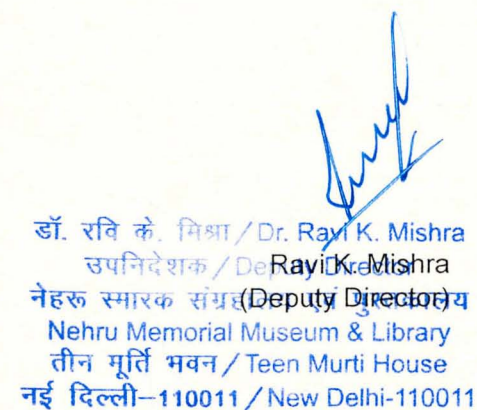 डॉ. रवि के. मिश्रा / Dr. Ravi K. Mishra
उपनिदेशक / Deputy Director
Ravi K. Mishra
नेहरू स्मारक संग्रहालय एवं पुस्तकालय
(Deputy Director)
Nehru Memorial Museum & Library
तीन मूर्ति भवन / Teen Murti House
नई दिल्ली–110011 / New Delhi-110011